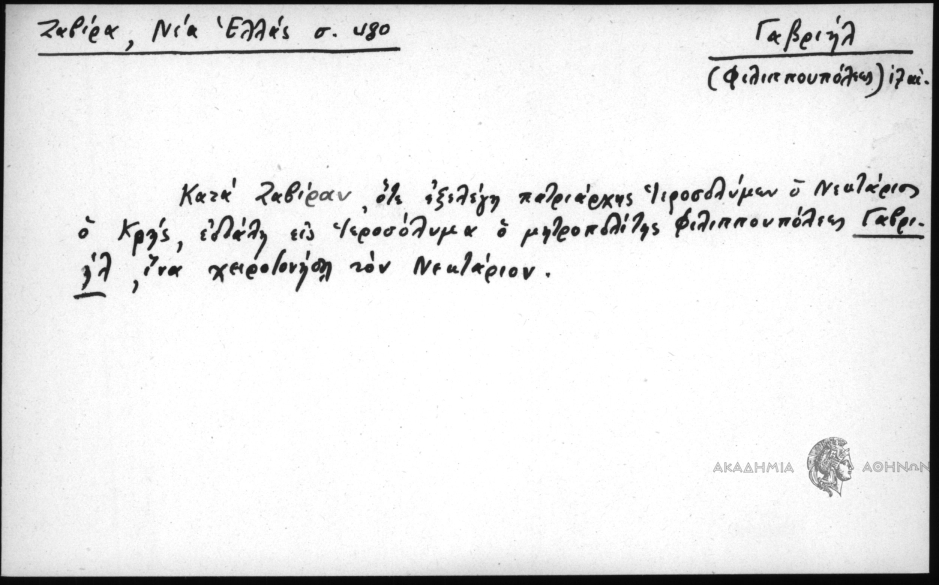 Ζαβίρα, Νέα Ἑλλάς σ. 480
Γαβριήλ
(Φιλιππουπόλεως)
Κατά Ζαβίραν, ὅτε ἐξελέγη πατριάρχης Ἱεροσολύμων ὁ Νεκτάριος
ὁ Κρής, ἐστάλη εἰς Ἱεροσόλυμα ὁ μητροπολίτης Φιλιππουπόλεως Γαβρι-
ήλ, ἵνα χειροτονήσῃ τὸν Νεκτάριον.
ΑΚΑΔΗΜΙΑ ΑΘΗΝΩΝ